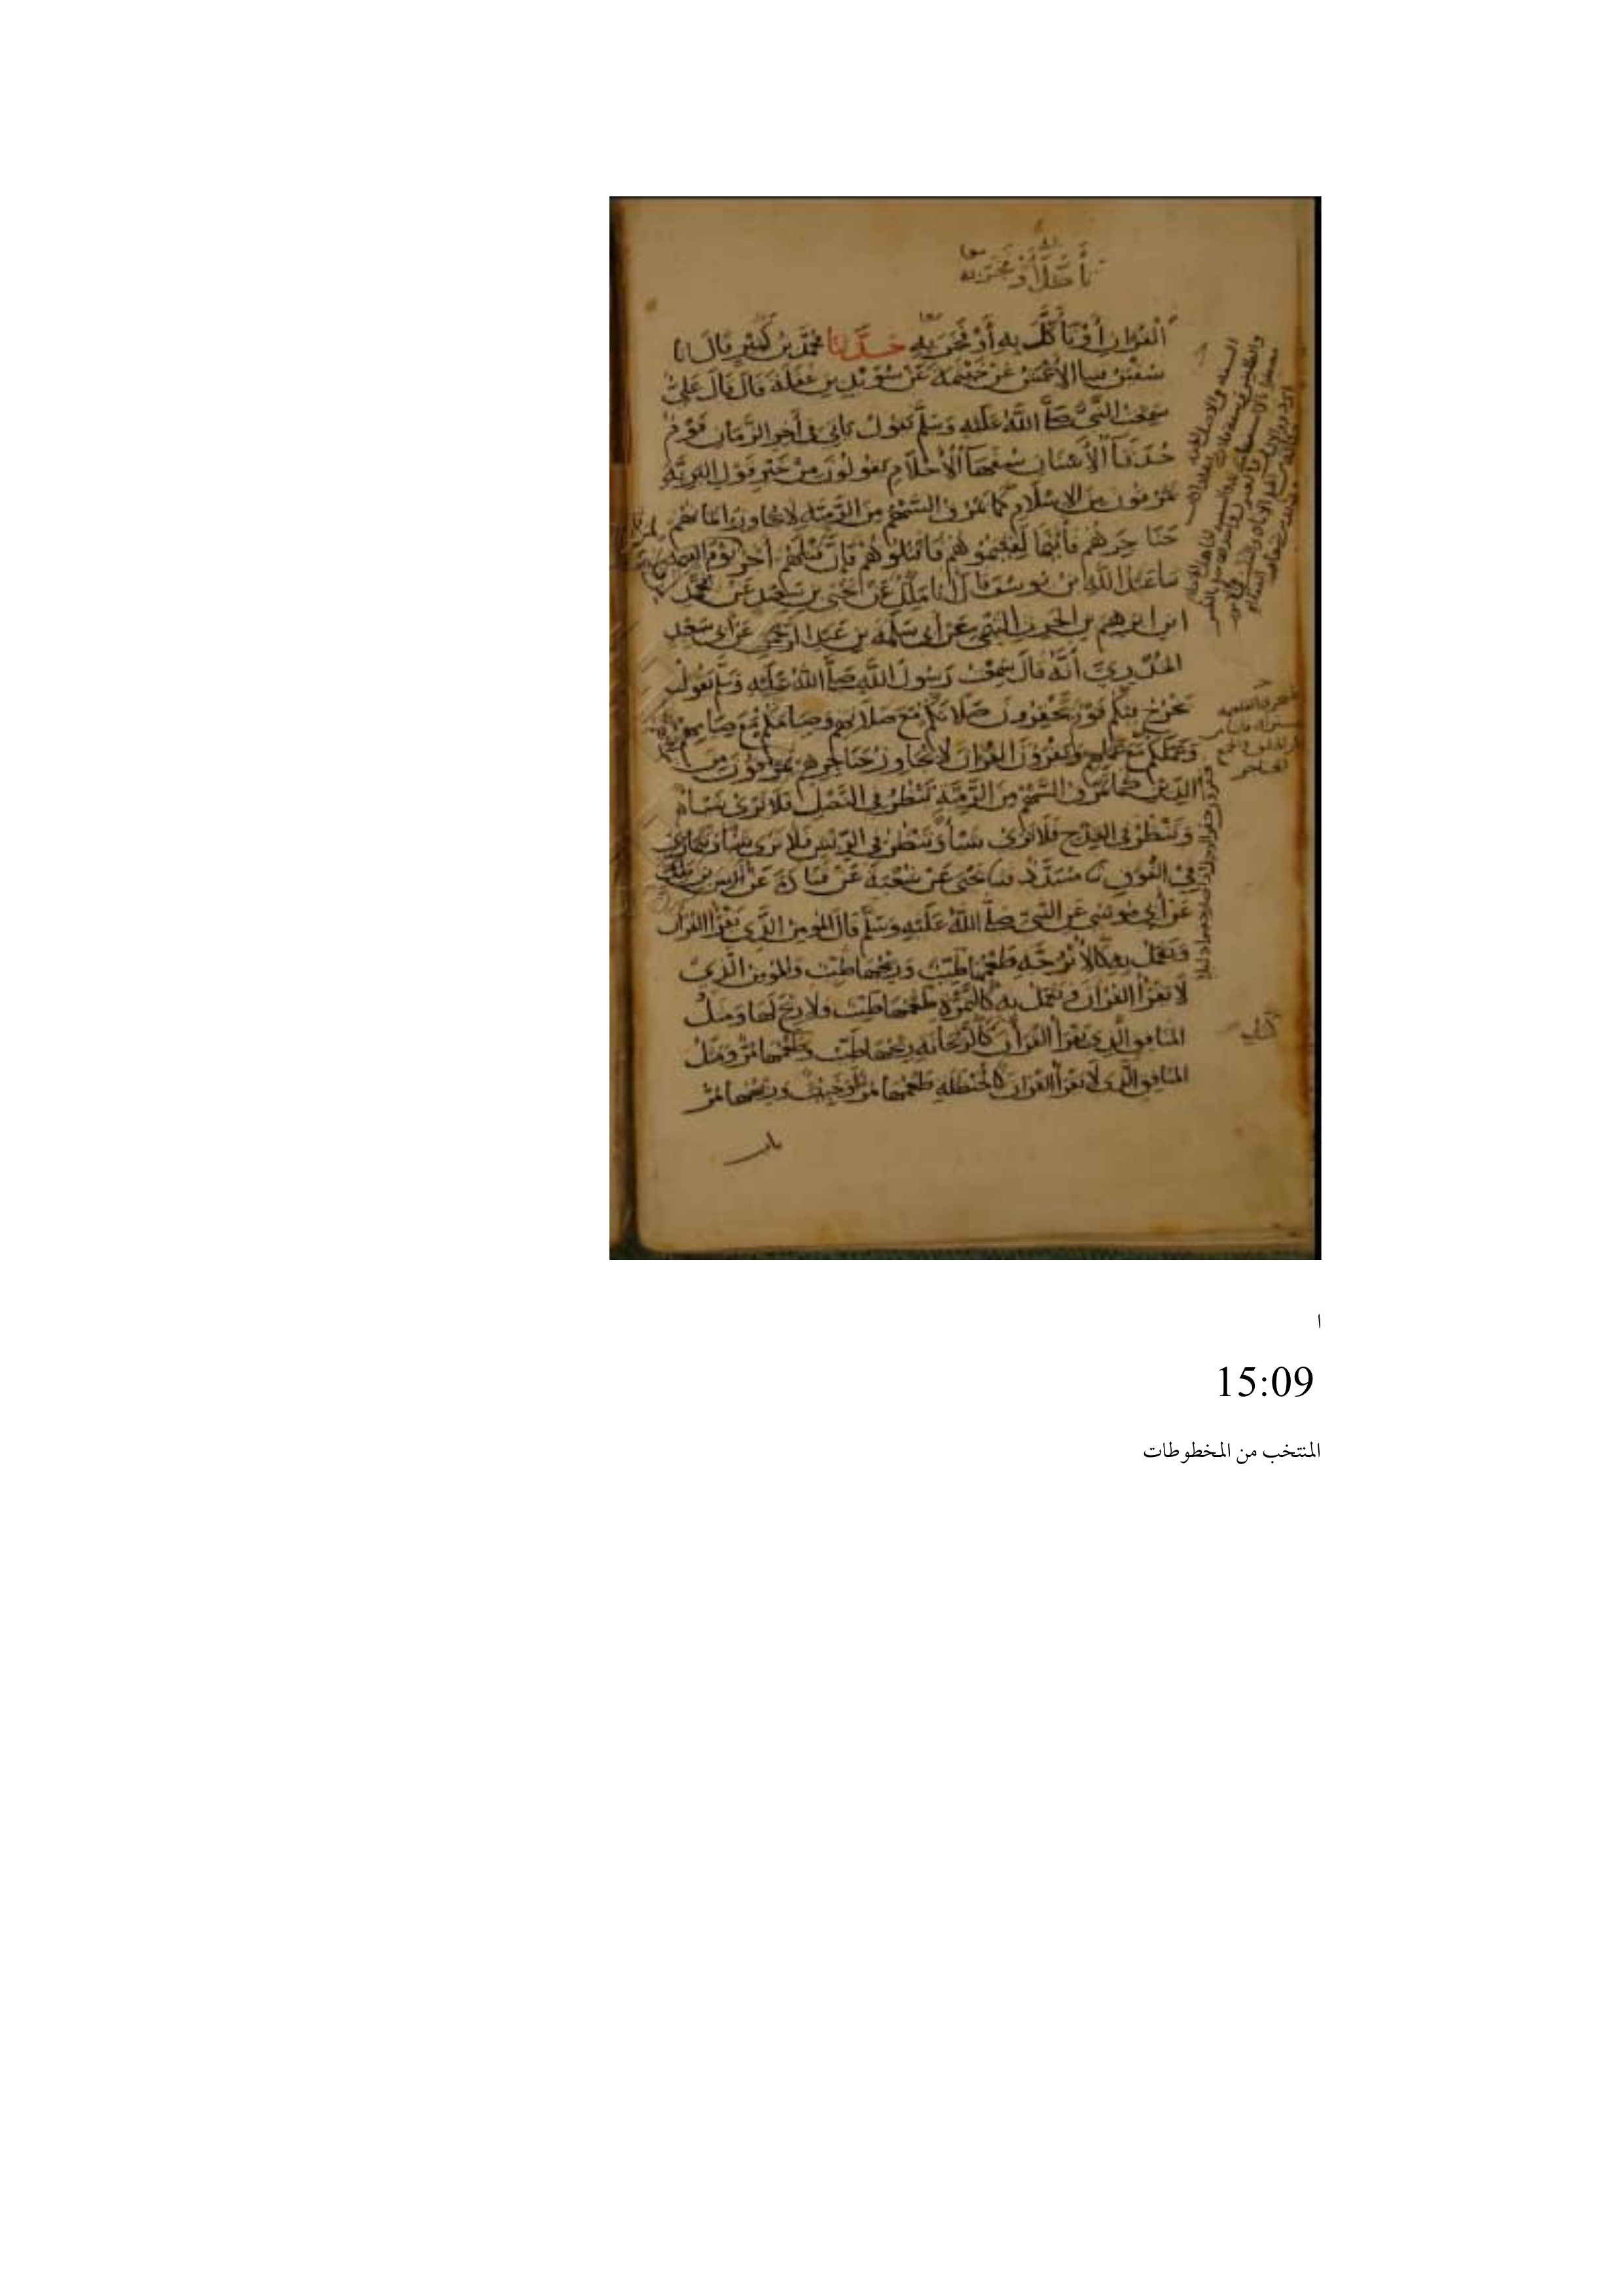 تأكل أو فجر به معا
القرآن أو تأكل به أو فجر به حدثنا محمد بن كثير قال انا
سفين نا الأعمش عن خيثمة عن سويد بن غفلة قال قال علي
سمعت النبي صلى الله عليه وسلم يقول يأتي في آخر الزمان قوم
حدثاء الأسنان سفهاء الأحلام يقولون من خير قول البرية
يمرقون من الإسلام كما يمرق السهم من الرمية لا يجاوز إيمانهم
حناجرهم فأينما لقيتموهم فاقتلوهم فإن قتلهم أجر يوم القيمة
نا عبد الله بن يوسف قال انا ملك عن يحيى بن سعيد عن محمد
ابن ابرهيم بن الحرث التيمي عن أبي سلمة بن عبد الرحمن عن أبي سعيد
الخدري أنه قال سمعت رسول الله صلى الله عليه وسلم يقول
يخرج فيكم قوم تحقرون صلاتكم مع صلاتهم وصيامكم مع صيامهم
وعملكم مع عملهم ويقرؤن القرآن لا يجاوز حناجرهم يمرقون من
الدين كما يمرق السهم من الرمية ينظر في النصل فلا يرى شيأ
وينظر في القدح فلا يرى شيأ وينظر في الريش فلا يرى شيأ ويتمارى
في الفوق نا مسدد نا يحيى عن شعبة عن قتادة عن أنس بن ملك
عن أبي موسى عن النبي صلى الله عليه وسلم قال المومن الذي يقرأ القرآن
ويعمل به كالأترجة طعمها طيب وريحها طيب والمومن الذي
لا يقرأ القرآن ويعمل به كالتمرة طعمها طيب ولا ريح لها ومثل
المنافق الذي يقرأ القرآن كالريحانة ريحها طيب وطعمها مر ومثل
المنافق الذي لا يقرأ القرآن كالحنظلة طعمها مر أو خبيث وريحها مر
باب
ا
15:09
المنتخب من المخطوطات